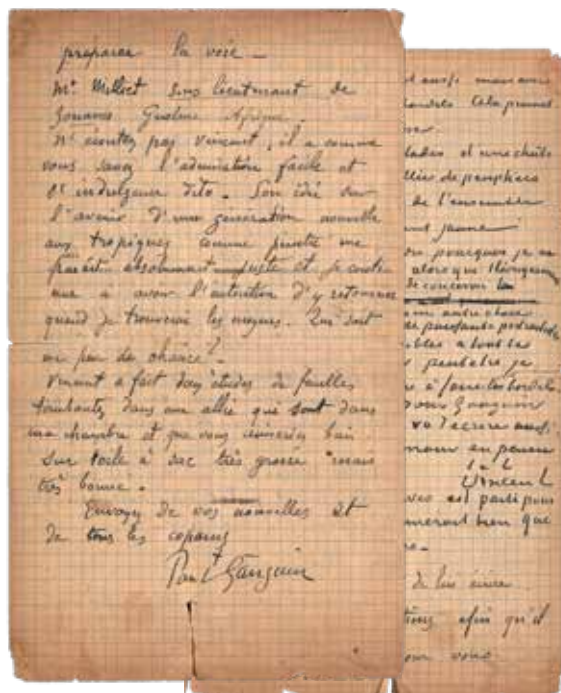 preparer la voie —
Mr Milliet sous lieutenant de
Zouaves Guelma Afrique.
N'écoutez pas Vincent, il a comme
vous savez l'admiration facile et
l'indulgence dito. Son idée sur
l'avenir d'une generation nouvelle
aux tropiques comme peintre me
parait absolument juste et je conti
nue à avoir l'intention d'y retourner
quand je trouverai les moyens. Qui sait
un peu de chance?..
Vincent a fait deux études de feuilles
tombantes dans une allée qui sont dans
ma chambre et que vous aimeriez bien.
Sur toile à sac très grosse mais
très bonne.
Envoyez de vos nouvelles et
de tous les copains
Paul Gauguin
et une chute
de peupliers
de l'ensemble
jaune
pourquoi je
alors que
de concevoir
autre chose
à
je
Gauguin
Vincent
est parti pour
bien que
de lui écrire
afin qu'il
vous